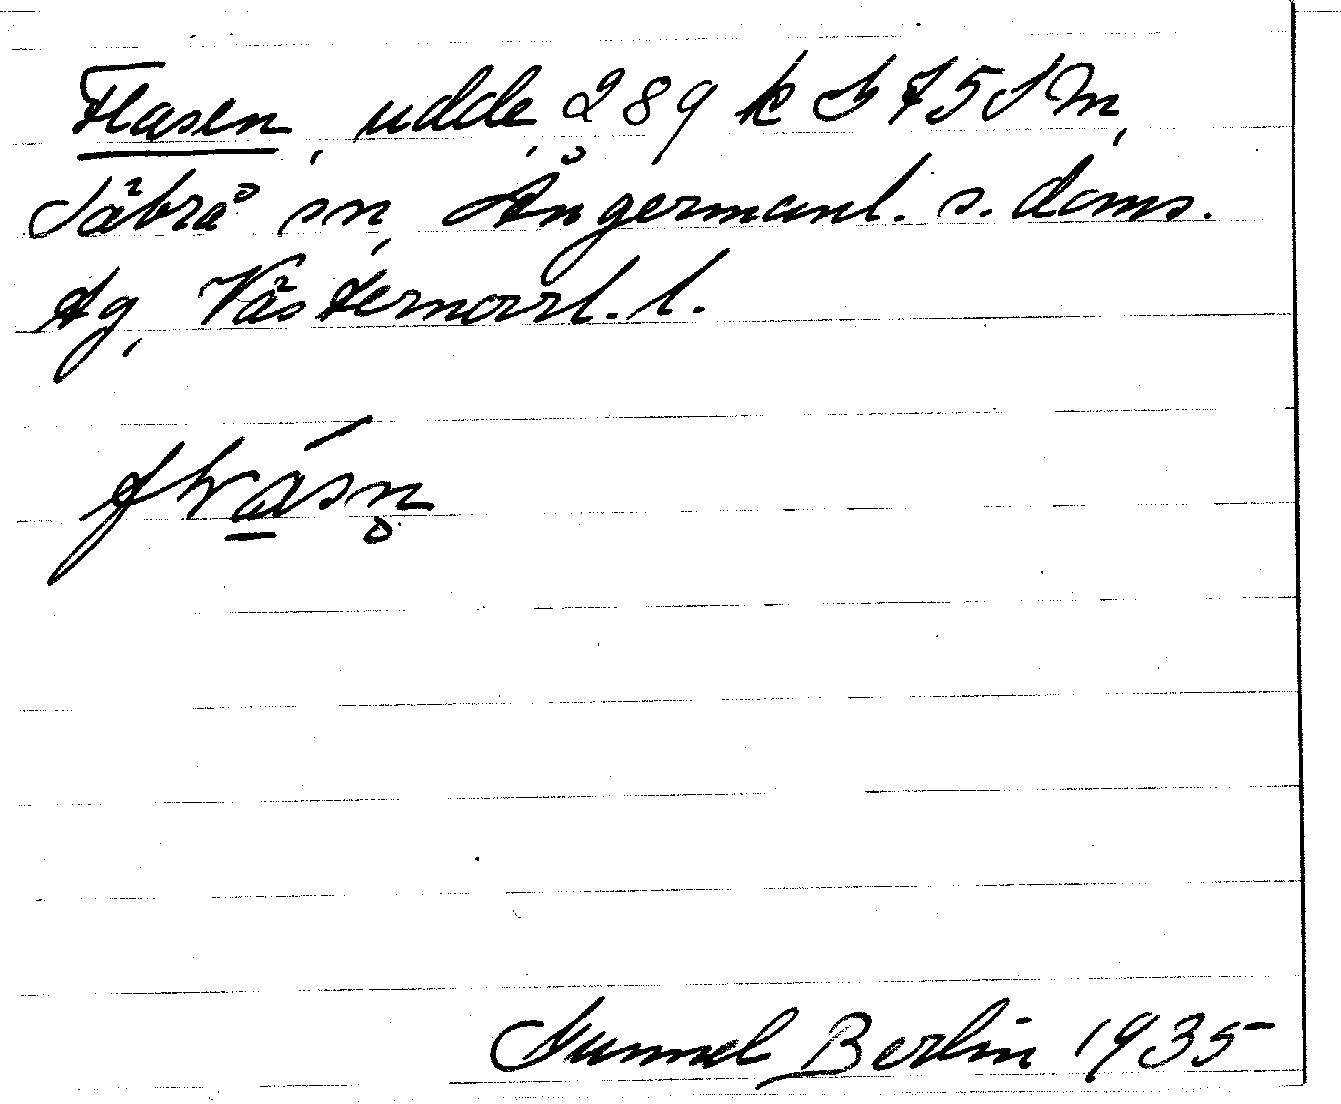 Flasen, udde, 289 k S 75 S M,
Säbrå sn, Ångermanl. s. doms.
tg, Västernorrl. l.
Gunnel Berlin 1935